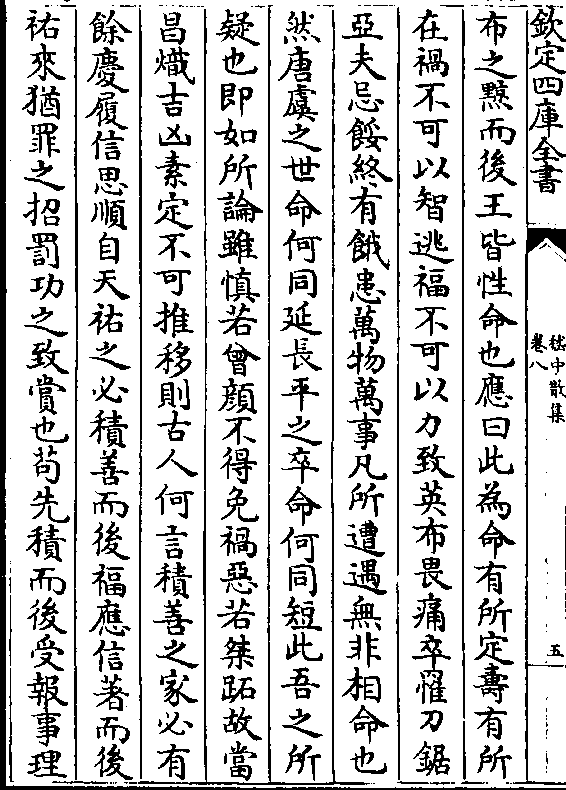 欽定四庫全書
嵇中散集
卷八
五
布之黥而後王皆性命也應曰此為命有所定壽有所
在禍不可以智逃福不可以力致英布畏痛卒罹刀鋸
亞夫忌餒終有餓患萬物萬事凡所遭遇無非相命也
然唐虞之世命何同延長平之卒命何同短此吾之所
疑也即如所論雖慎若曾顔不得免禍惡若桀跖故當
昌熾吉凶素定不可推移則古人何言積善之家必有
餘慶履信思順自天祐之必積善而後福應信著而後
祐來猶罪之招罰功之致賞也苟先積而後受報事理